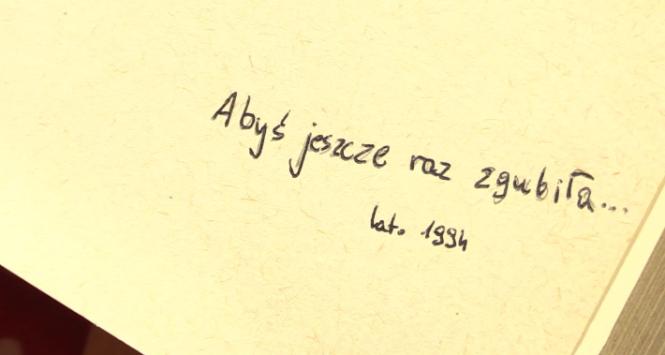 Abyś jeszcze raz zgubiła...
lato 1994